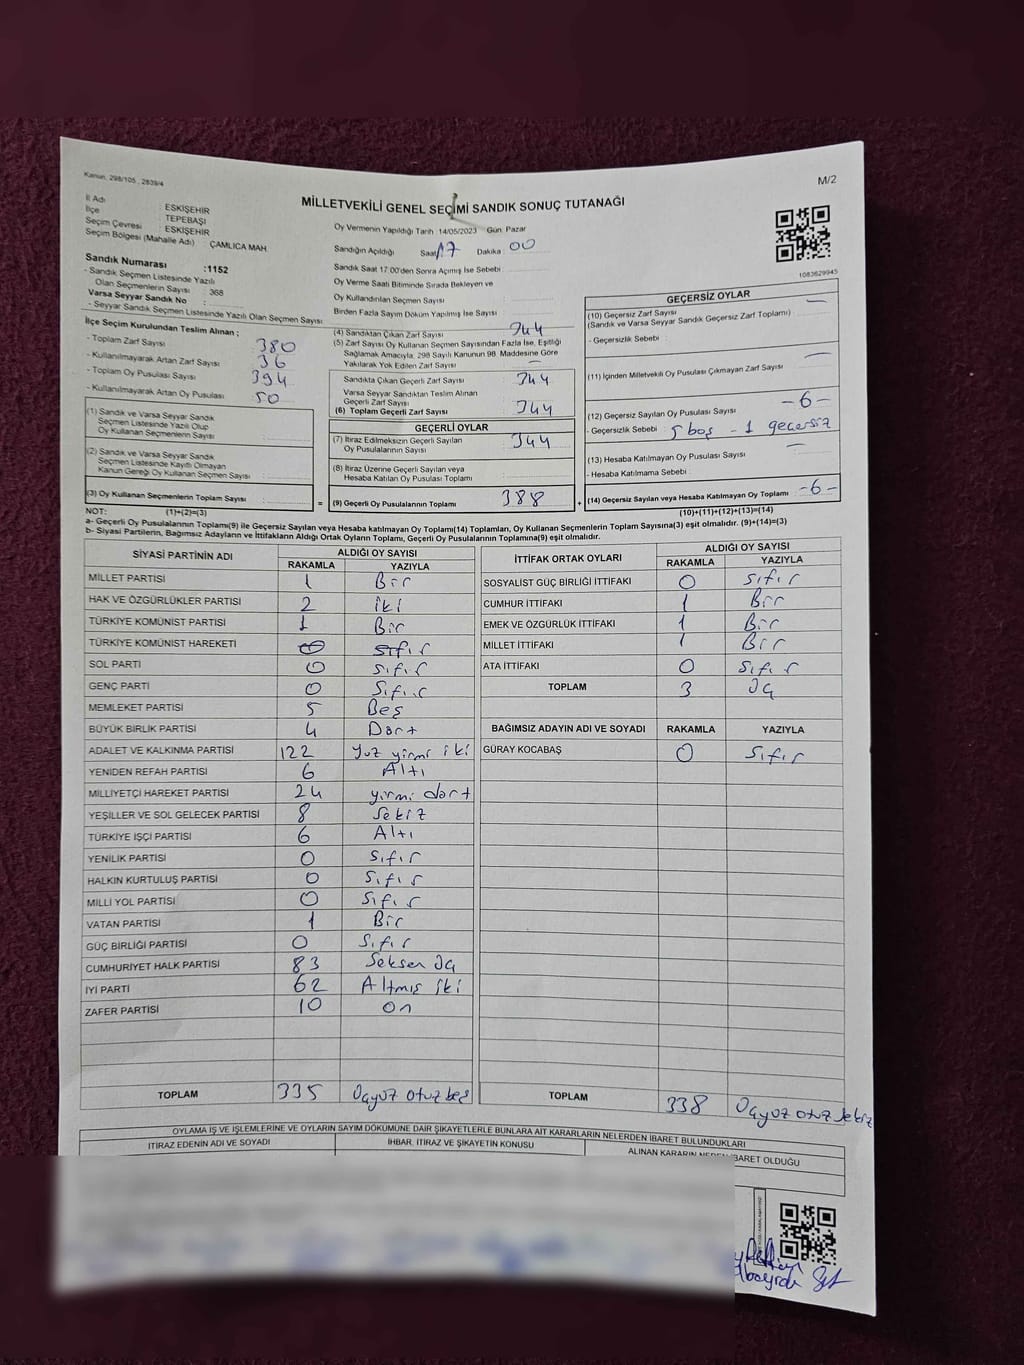 Kanun, 298/105 , 2839/4
M/2
MİLLETVEKİLİ GENEL SEÇİMİ SANDIK SONUÇ TUTANAĞI
İl Adı : ESKİŞEHİR
İlçe : TEPEBAŞI
Seçim Çevresi : ESKİŞEHİR
Seçim Bölgesi (Mahalle Adı) : ÇAMLICA MAH.
Sandık Numarası :1152
- Sandık Seçmen Listesinde Yazılı
Olan Seçmenlerin Sayısı : 368
Varsa Seyyar Sandık No :
- Seyyar Sandık Seçmen Listesinde Yazılı Olan Seçmen Sayısı
İlçe Seçim Kurulundan Teslim Alınan ;
- Toplam Zarf Sayısı 380
- Kullanılmayarak Artan Zarf Sayısı : 36
- Toplam Oy Pusulası Sayısı : 394
- Kullanılmayarak Artan Oy Pusulası 50
(1) Sandık ve Varsa Seyyar Sandık
Seçmen Listesinde Yazılı Olup
Oy Kullanan Seçmenlerin Sayısı :
(2) Sandık ve Varsa Seyyar Sandık
Seçmen Listesinde Kayıtlı Olmayan
Kanun Gereği Oy Kullanan Seçmen Sayısı :
(3) Oy Kullanan Seçmenlerin Toplam Sayısı :
Oy Vermenin Yapıldığı Tarih 14/05/2023 Gün: Pazar
Sandığın Açıldığı Saat 17 Dakika : 00
Sandık Saat 17:00'den Sonra Açılmış İse Sebebi :
Oy Verme Saati Bitiminde Sırada Bekleyen ve
Oy Kullandırılan Seçmen Sayısı :
Birden Fazla Sayım Döküm Yapılmış İse Sayısı :
(4) Sandıktan Çıkan Zarf Sayısı : 344
(5) Zarf Sayısı Oy Kullanan Seçmen Sayısından Fazla İse, Eşitliği
Sağlamak Amacıyla, 298 Sayılı Kanunun 98. Maddesine Göre
Yakılarak Yok Edilen Zarf Sayısı : —
Sandıkta Çıkan Geçerli Zarf Sayısı : 344
Varsa Seyyar Sandıktan Teslim Alınan
Geçerli Zarf Sayısı :
(6) Toplam Geçerli Zarf Sayısı : 344
GEÇERLİ OYLAR
(7) İtiraz Edilmeksizin Geçerli Sayılan
Oy Pusulası Sayısı : 344
(8) İtiraz Üzerine Geçerli Sayılan veya
Hesaba Katılan Oy Pusulası Toplamı :
= (9) Geçerli Oy Pusulalarının Toplamı : 388 +
1083629945
GEÇERSİZ OYLAR
(10) Geçersiz Zarf Sayısı : —
(Sandık ve Varsa Seyyar Sandık Geçersiz Zarf Toplamı)
- Geçersizlik Sebebi :
(11) İçinden Milletvekili Oy Pusulası Çıkmayan Zarf Sayısı : —
(12) Geçersiz Sayılan Oy Pusulası Sayısı : -6-
- Geçersizlik Sebebi : 5 boş - 1 geçersiz
(13) Hesaba Katılmayan Oy Pusulası Sayısı : —
- Hesaba Katılmama Sebebi :
(14) Geçersiz Sayılan veya Hesaba Katılmayan Oy Toplamı : -6-
NOT: (1)+(2)=(3) (10)+(11)+(12)+(13)=(14)
a- Geçerli Oy Pusulalarının Toplamı(9) ile Geçersiz Sayılan veya Hesaba katılmayan Oy Toplam(14) Toplamları, Oy Kullanan Seçmenlerin Toplam Sayısına(3) eşit olmalıdır. (9)+(14)=(3)
b- Siyasi Partilerin, Bağımsız Adayların ve İttifakların Aldığı Ortak Oyların Toplamı, Geçerli Oy Pusulalarının Toplamına(9) eşit olmalıdır.
SİYASİ PARTİNİN ADI ALDIĞI OY SAYISI
RAKAMLA YAZIYLA
MİLLET PARTİSİ 1 Bir
HAK VE ÖZGÜRLÜKLER PARTİSİ 2 iki
TÜRKİYE KOMÜNİST PARTİSİ 1 Bir
TÜRKİYE KOMÜNİST HAREKETİ 0 sıfır
SOL PARTİ 0 sıfır
GENÇ PARTİ 0 Sıfır
MEMLEKET PARTİSİ 5 Beş
BÜYÜK BİRLİK PARTİSİ 4 Dört
ADALET VE KALKINMA PARTİSİ 122 Yüz yirmi iki
YENİDEN REFAH PARTİSİ 6 Altı
MİLLİYETÇİ HAREKET PARTİSİ 24 yirmi dört
YEŞİLLER VE SOL GELECEK PARTİSİ 8 Sekiz
TÜRKİYE İŞÇİ PARTİSİ 6 Altı
YENİLİK PARTİSİ 0 Sıfır
HALKIN KURTULUŞ PARTİSİ 0 Sıfır
MİLLİ YOL PARTİSİ 0 Sıfır
VATAN PARTİSİ 1 Bir
GÜÇ BİRLİĞİ PARTİSİ 0 Sıfır
CUMHURİYET HALK PARTİSİ 83 Seksen üç
İYİ PARTİ 62 Altmış iki
ZAFER PARTİSİ 10 On
TOPLAM 335 Üçyüz otuz beş
İTTİFAK ORTAK OYLARI ALDIĞI OY SAYISI
RAKAMLA YAZIYLA
SOSYALİST GÜÇ BİRLİĞİ İTTİFAKI 0 Sıfır
CUMHUR İTTİFAKI 1 Bir
EMEK VE ÖZGÜRLÜK İTTİFAKI 1 Bir
MİLLET İTTİFAKI 1 Bir
ATA İTTİFAKI 0 Sıfır
TOPLAM 3 Üç
BAĞIMSIZ ADAYIN ADI VE SOYADI RAKAMLA YAZIYLA
GÜRAY KOCABAŞ 0 Sıfır
TOPLAM 338 Üçyüz otuz sekiz
OYLAMA İŞ VE İŞLEMLERİNE VE OYLARIN SAYIM DÖKÜMÜNE DAİR ŞİKAYETLERLE BUNLARA AİT KARARLARIN NELERDEN İBARET BULUNDUKLARI
İTİRAZ EDENİN ADI VE SOYADI İHBAR, İTİRAZ VE ŞİKAYETİN KONUSU ALINAN KARARIN NEDEN İBARET OLDUĞU